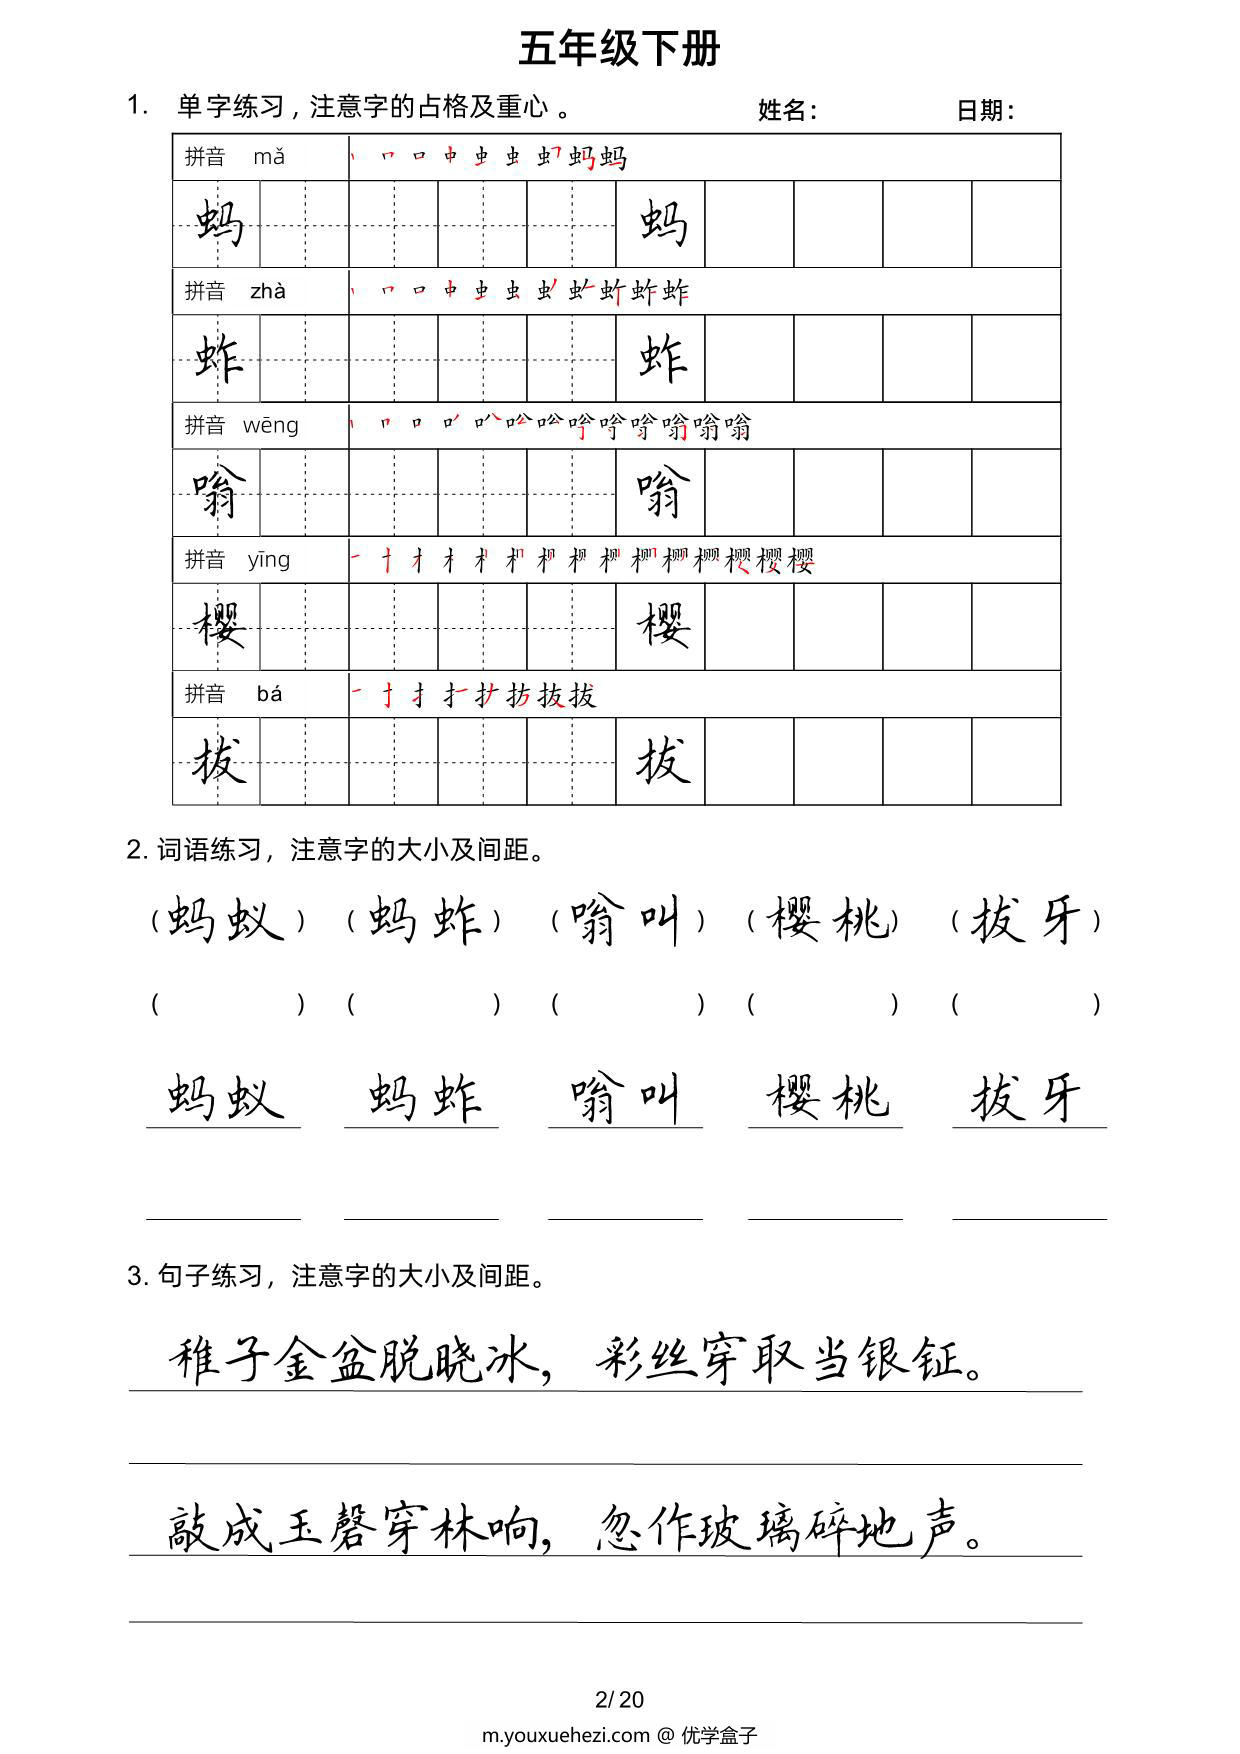 五年级下册
1. 单字练习，注意字的占格及重心。 姓名： 日期：
拼音 mǎ
蚂 蚂
拼音 zhà
蚱 蚱
拼音 wēng
嗡 嗡
拼音 yīng
樱 樱
拼音 bá
拔 拔
2. 词语练习，注意字的大小及间距。
（蚂蚁）（蚂蚱）（嗡叫）（樱桃）（拔牙）
（ ）（ ）（ ）（ ）（ ）
蚂蚁 蚂蚱 嗡叫 樱桃 拔牙
3. 句子练习，注意字的大小及间距。
稚子金盆脱晓冰，彩丝穿取当银钲。
敲成玉磬穿林响，忽作玻璃碎地声。
2/ 20
m.youxuehezi.com @ 优学盒子